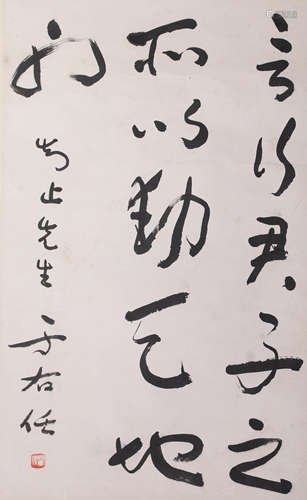 言行君子之
所以動天地也
知止先生
于右任